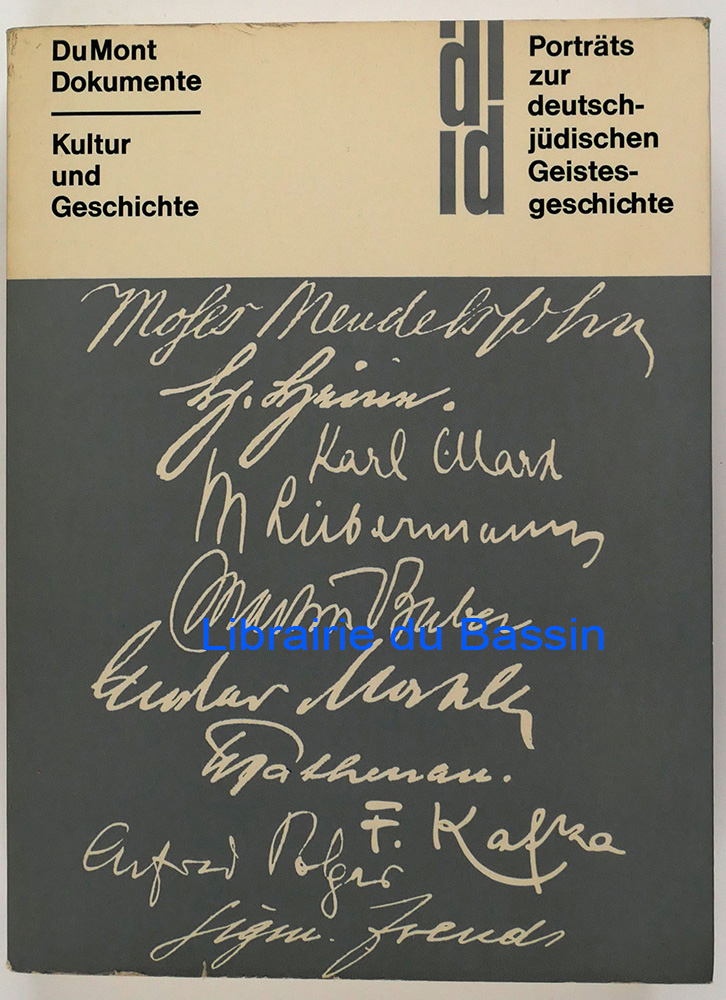 DuMont
Dokumente
Kultur
und
Geschichte
did
Porträts
zur
deutsch-
jüdischen
Geistes-
geschichte
Moses Mendelssohn
H. Heine.
Karl Marx
M Liebermann
Martin Buber
Librairie du Bassin
Gustav Mahler
Rathenau.
F. Kafka
Alfred Polgar
Sigm. Freud